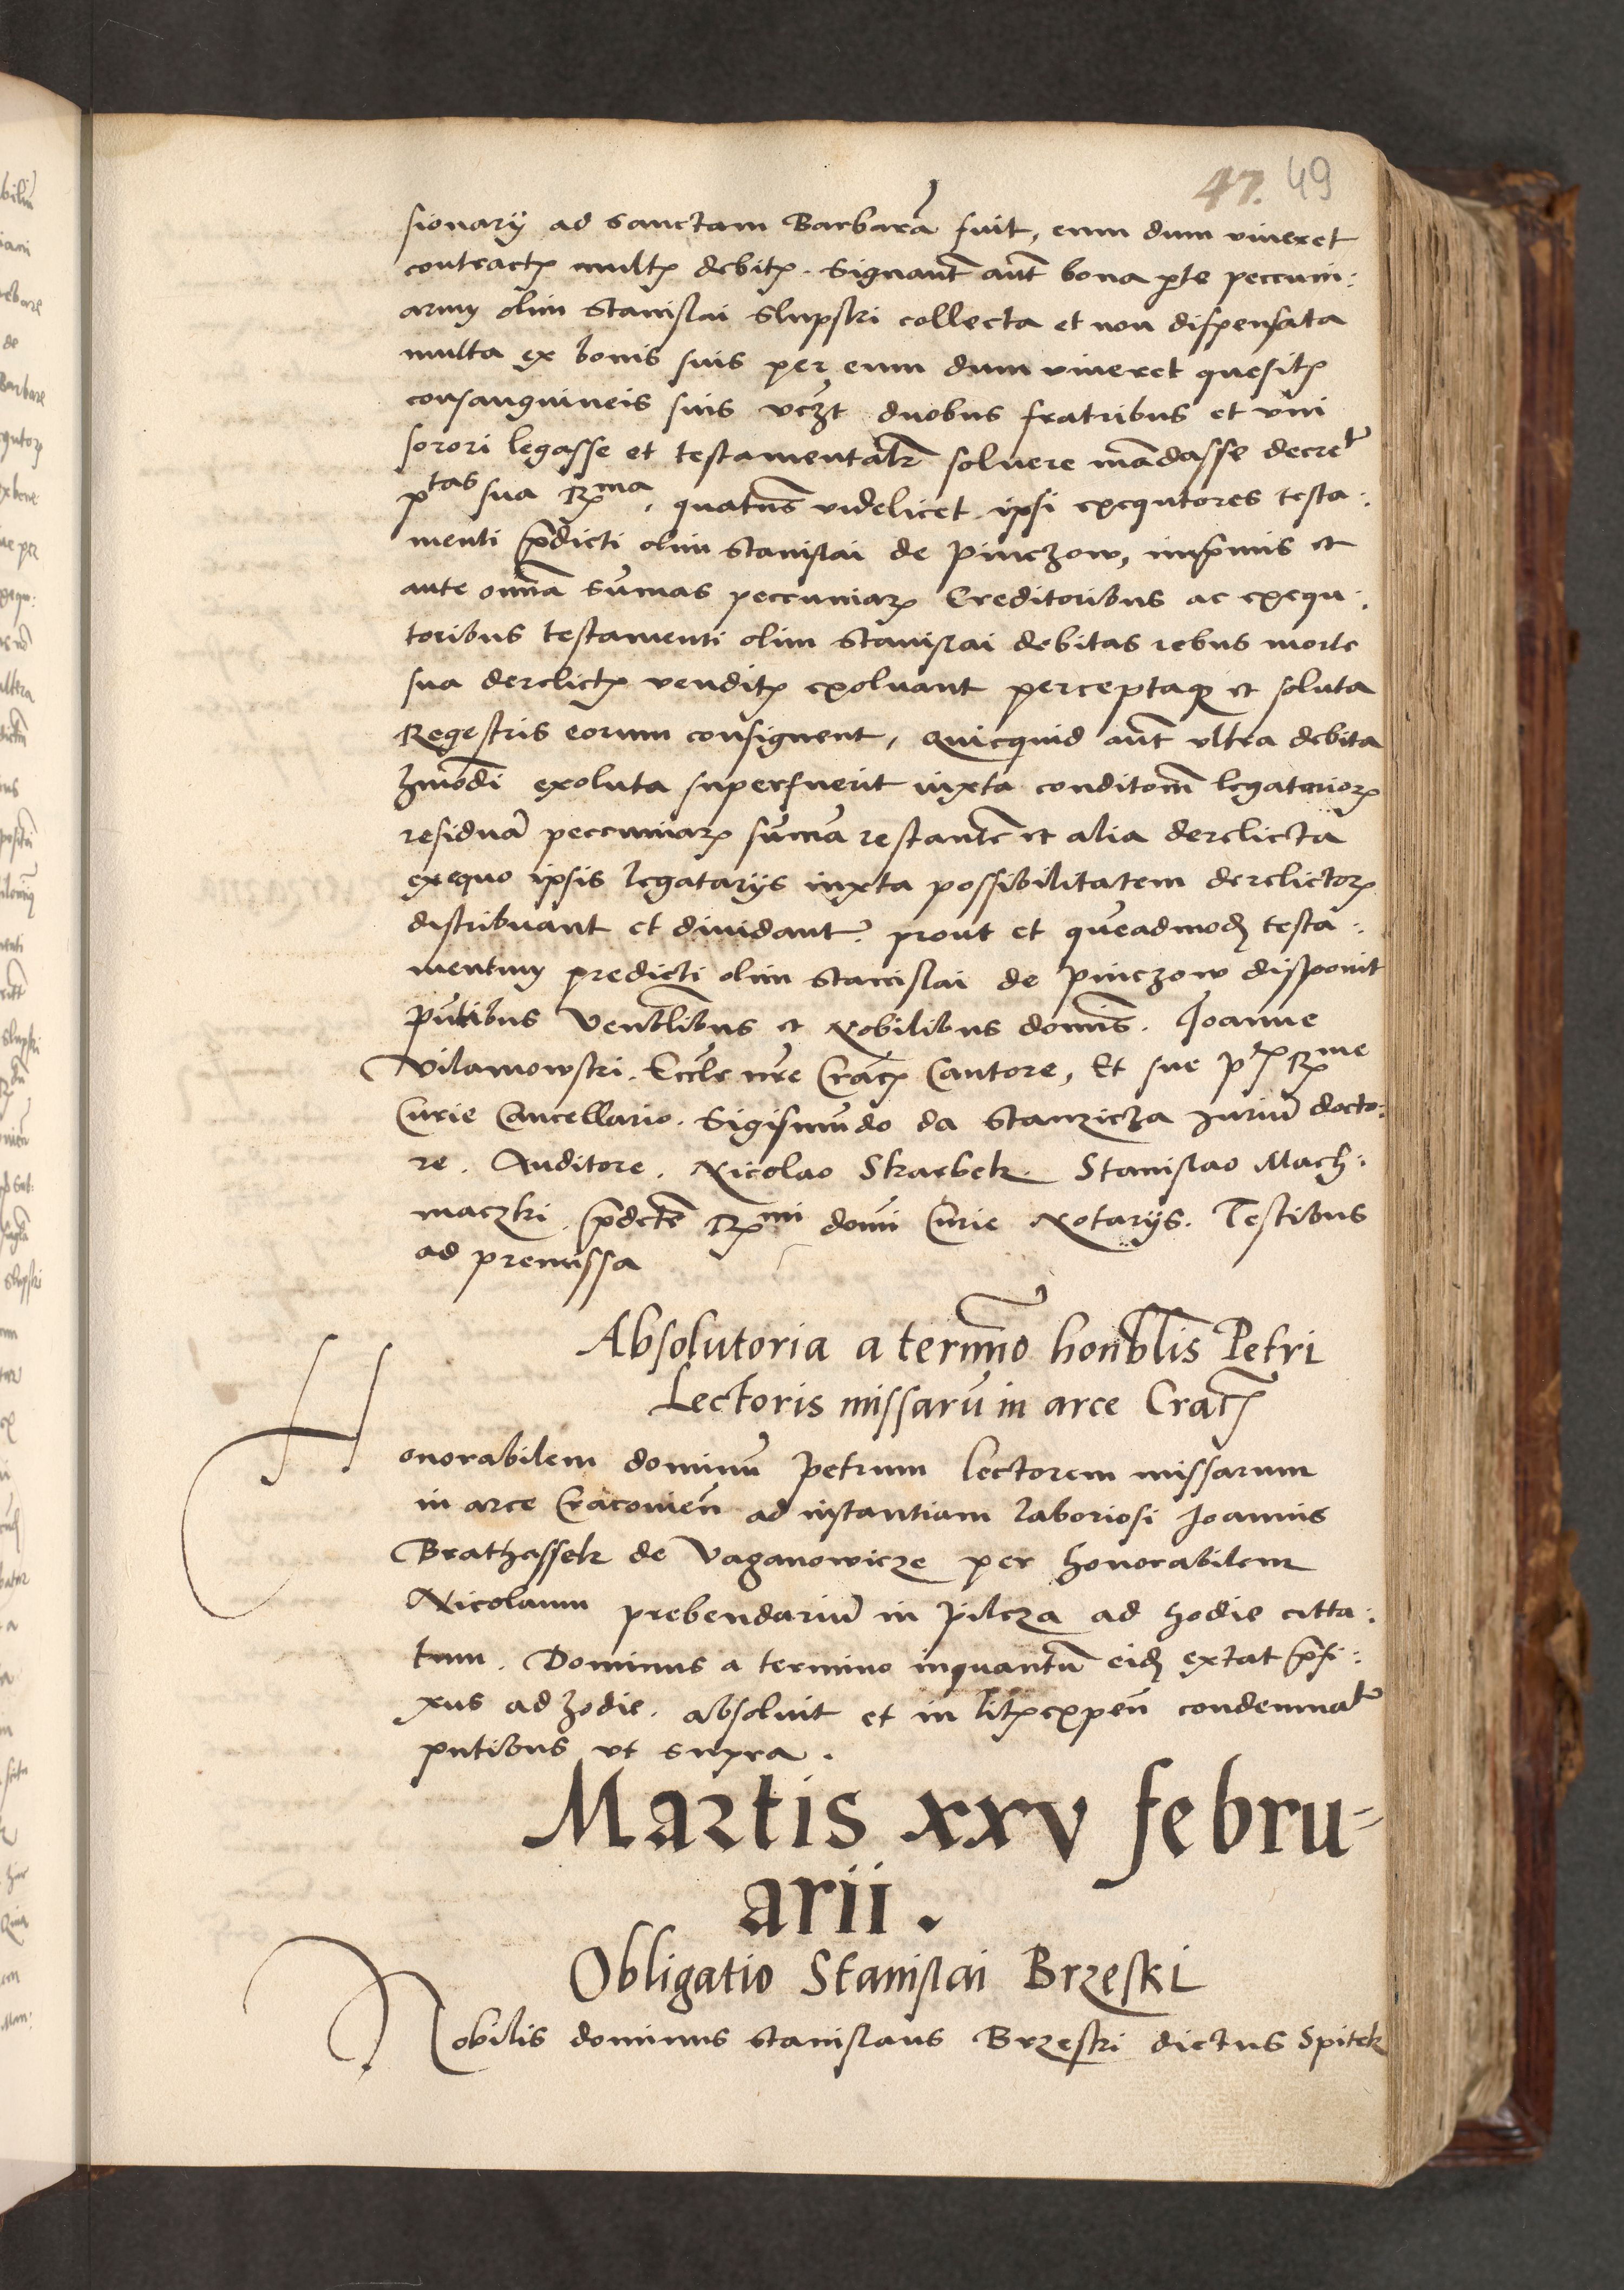 47. 49
sionarÿ ad sanctam Barbarā fuit, eum dum viueret
contractꝭ multꝭ debitꝭ. Signant̄ aūt bona ꝑte peccuni:
arum olim Stanislai Slupski collecta et non dispensata
multa ex bonis suis per eum dum viueret quesitꝭ
consanguineis suis vczt duobus fratribus et vni
sorori legasse et testamentalr̄ soluere mādasse decreͭ
pᵗᵃˢ sua Rᵐᵃ, quatn̄s videlicet ipsi exequtores testa:
menti p̄dicti olim Stanislai de Pinczow, inp̄mis et
ante om̄ia sūmas peccuniaꝝ Creditoribus ac exequ:
toribus testamenti olim Stanislai debitas rebus morte
sua derelictꝭ venditꝭ exoluant perceptaqꝫ et soluta
Regestris eorum consignent, Quicquid aūt vltra debita
hm̄odi exoluta superfuerit iuxta conditōm legatarioꝝ
residuā peccuniaꝝ sūma restantē et alia derelicta
exequo ipsis legatarÿs iuxta possibilitatem derelictoꝝ
distribuant et diuidant. prout et quēadmodꝫ testa:
mentum predicti olim Stanislai de Pinczow disponit
p̄ntibus Venēlibus et Nobilibus domīs. Joanne
Vilamowski. Eccle nr̄e Cracꝭ Cantore, Et sue pᵗꝭ Rᵐᵉ
Curie Cancellario. Sigismūdo da Stanzicza Juriū docto:
re. Auditore. Nicolao Skarbek. Stanislao Mach:
maczki. p̄dctē Rᵐⁱ domī Curie Notarÿs. Testibus
ad premissa
Absolutoria a termīo honblis Petri
Lectoris missarū in arce Cracꝭ
Honorabilem dominū Petrum lectorem missarum
in arce Cracouien̄ ad instantiam laboriosi Joannis
Brathassek de Vaganowicze per honorabilem
Nicolaum prebendariū in Pilcza ad hodie citta:
tum. Dominus a termino inquantū eidꝫ extat p̄fi:
xus ad hodie. absoluit et in litꝭ expen̄ condemnaͭ
pntibus vt supra.
Martis xxv febru-
arii.
Obligatio Stanislai Brzeski
Nobilis dominus Stanislaus Brzeski dictus Spitek